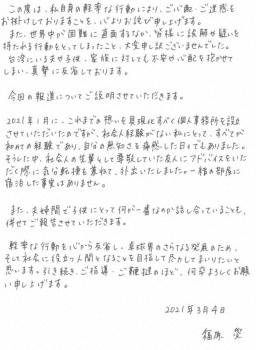 この度は、私自身の軽率な行動により、ご心配・ご迷惑を
お掛けしておりますことを、心よりお詫び申し上げます。
また、世界中が困難に直面するなか、皆様に誤解や疑いを
持たれる行動をとってしまったこと、大変申し訳ございませんでした。
台湾にいる夫や子供、家族に対しても不安や心配を抱かせて
しまい、真摯に反省しております。
今回の報道についてご説明させていただきます。
2021年1月に、これまでの想いを具現化すべく個人事務所を設立
させていただいたのですが、社会人経験がない私にとって、すべてが
初めての経験であり、自分の無知さを痛感した日々でもありました。
そうした中、社会人の先輩として尊敬していた友人にアドバイスをいた
だく際に気分転換を兼ねて、外出いたしましたが一緒の部屋に
宿泊した事実はありません。
また、夫婦間で子供にとって何が一番なのか話し合っていることも、
併せてご報告させていただきます。
軽率な行動を心から反省し、卓球界のさらなる発展のため、
そして社会に役立つ人間となることを目指して尽力してまいりたいと
思います。引き続き、ご指導・ご鞭撻のほど、何卒よろしくお願
い申し上げます。
2021年3月4日
福原 愛